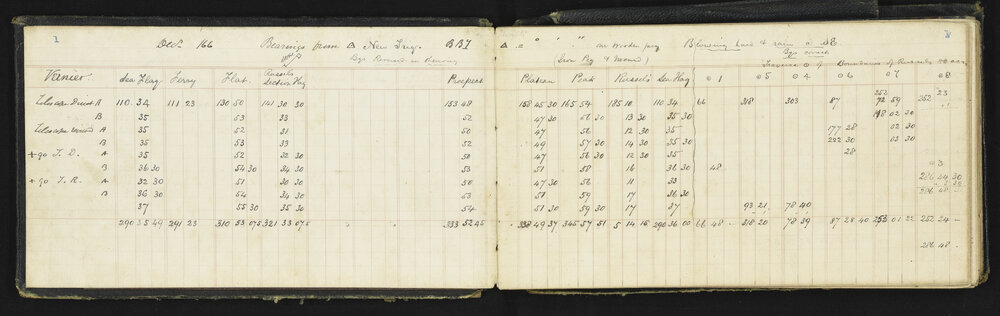 1
Decr 166 Bearings from △ New Trig. BBI
Bgs Round in
Vernier Sea Flag Ferry Flat. Russel's Section Flag Prospect
Telescope Direct A 110 34 111 23 130 50 141 30 30 153 48
B 35 53 33 52
A 35 52 31 50
B 35 53 33 52
+ 90 T. D. A 35 52 32 30 50
B 36 30 54 30 34 30 53
+ 90 T. R. A 32 30 51 30 30 50
B 36 30 54 34 30 53
37 55 30 35 30 54
290 35 49 291 23 310 53 07 5 321 33 07 5 333 52 45
on Wooden peg Blowing hard & rain SE
(Iron Peg & Mound) Bgs correct
Traverse of Boundaries of
Plateau Peak Russel's Sea Flag 01 05 04 06 07 08
158 45 30 165 54 185 10 110 34 66 318 303 87 252 72 59 252 23
47 30 56 30 13 30 35 30 02 30
47 56 12 30 35 177 28 02 30
49 57 30 14 30 35 30 222 30 03 30
47 56 30 12 30 35 28
51 58 16 36 30 48
47 30 56 11 33
51 59 17 36 30
51 30 59 30 17 37 93 21 78 40
338 49 37 345 57 51 5 14 16 290 36 00 66 48 318 20 78 39 87 28 40 253 01 22 252 24
286 48